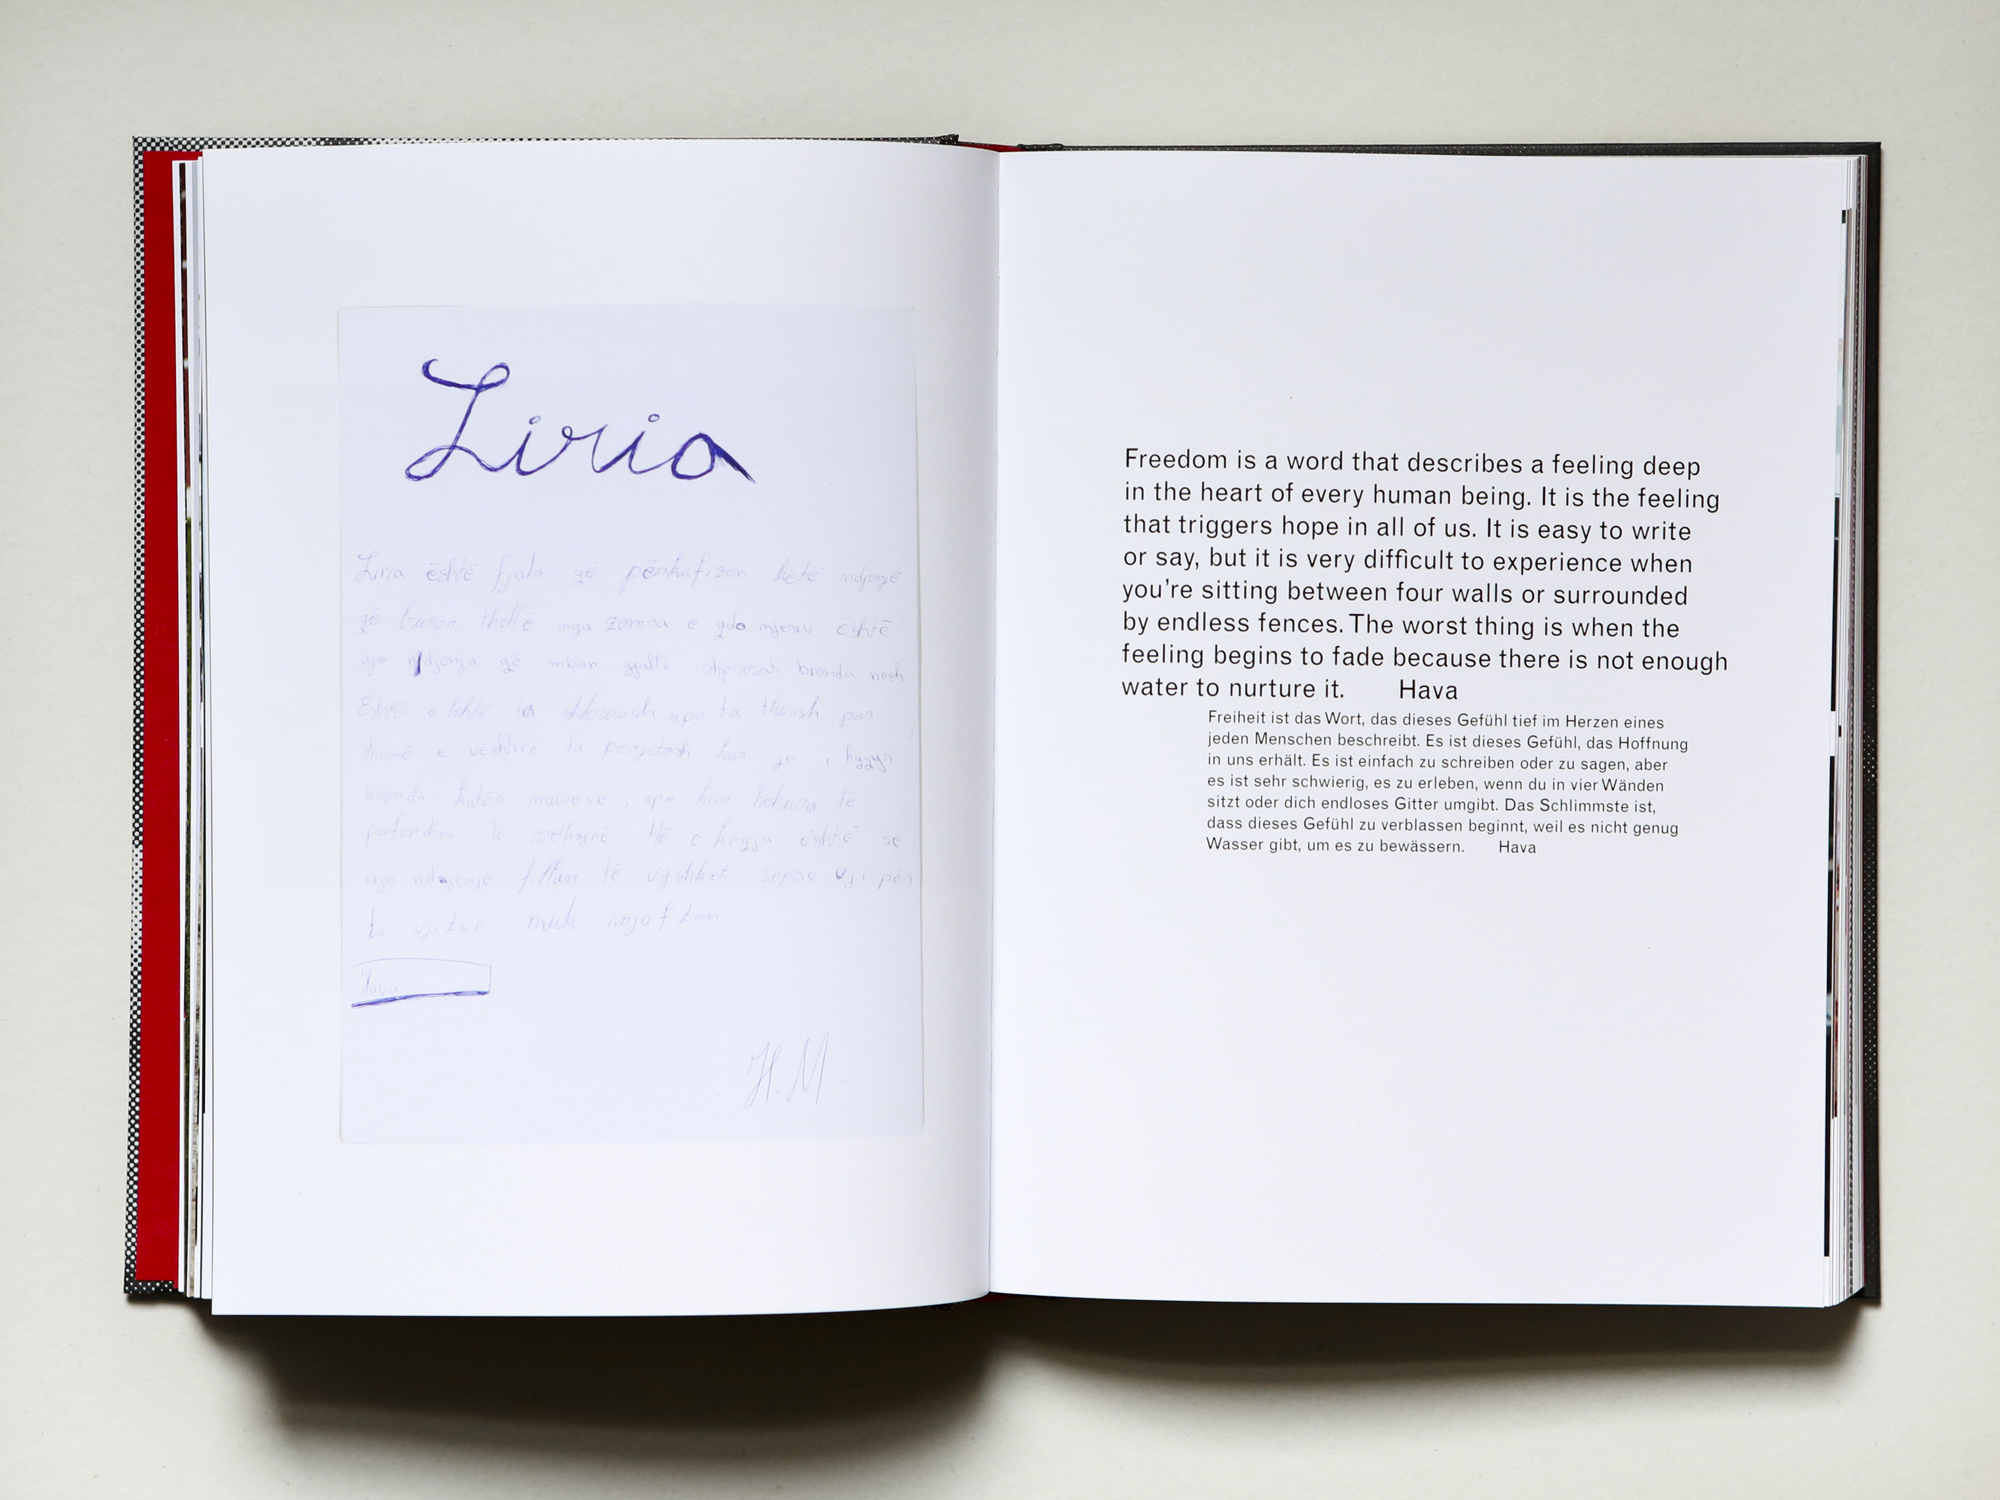 Liria
Liria është fjala që përkufizon ketë ndjenjë
që buron thellë nga zemra e çdo njeriu. Është
ajo ndjenja që mban gjallë shpresat brenda nesh
Eshtë e lehtë ta shkruash apo ta thuash por
shumë e vështirë ta përjetosh kur je i
brenda katër mureve, apo kur hekura të
pafundëm të rrethojnë Më e keqja është se
ajo ndjenjë fillon të vyshket sepse uji për
ta ujitur nuk mjafton
Hava
H.M
Freedom is a word that describes a feeling deep
in the heart of every human being. It is the feeling
that triggers hope in all of us. It is easy to write
or say, but it is very difficult to experience when
you're sitting between four walls or surrounded
by endless fences. The worst thing is when the
feeling begins to fade because there is not enough
water to nurture it. Hava
Freiheit ist das Wort, das dieses Gefühl tief im Herzen eines
jeden Menschen beschreibt. Es ist dieses Gefühl, das Hoffnung
in uns erhält. Es ist einfach zu schreiben oder zu sagen, aber
es ist sehr schwierig, es zu erleben, wenn du in vier Wänden
sitzt oder dich endloses Gitter umgibt. Das Schlimmste ist,
dass dieses Gefühl zu verblassen beginnt, weil es nicht genug
Wasser gibt, um es zu bewässern. Hava